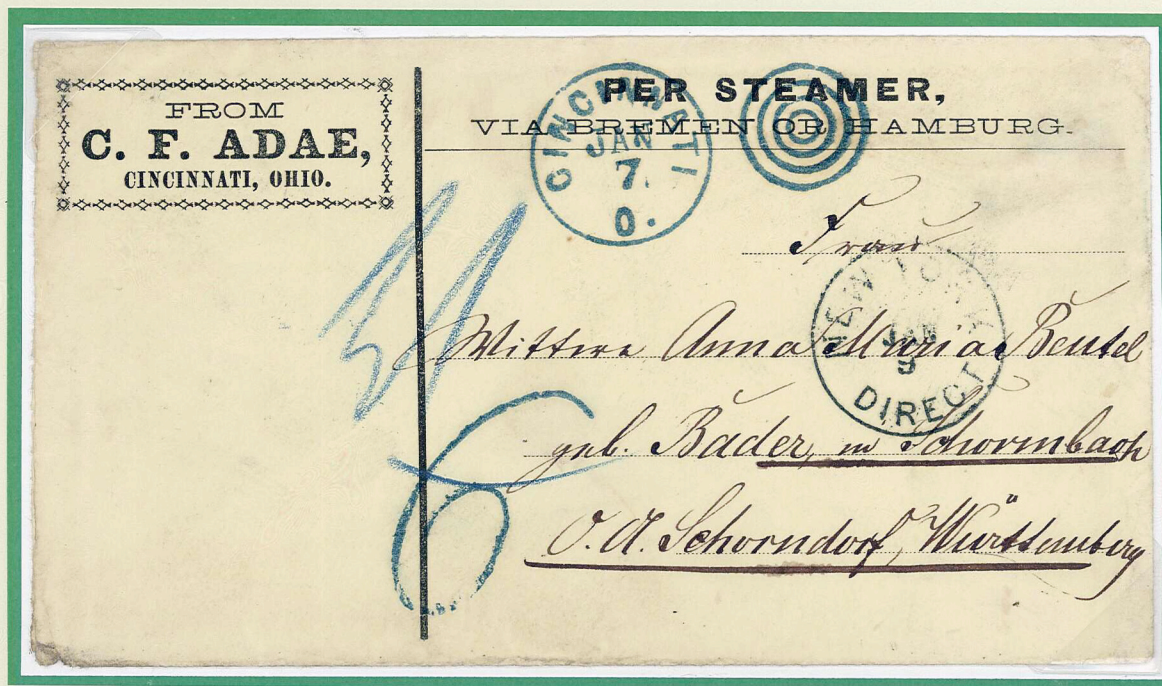 FROM
C. F. ADAE,
CINCINNATI, OHIO.
PER STEAMER,
VIA BREMEN OR HAMBURG.
CINCINNATI
JAN
7.
O.
Frau
NEW YORK
JAN
9
DIRECT
Wittwe Anna Maria Beutel
geb. Bader, in Schornbach
O. A. Schorndorf, Württemberg